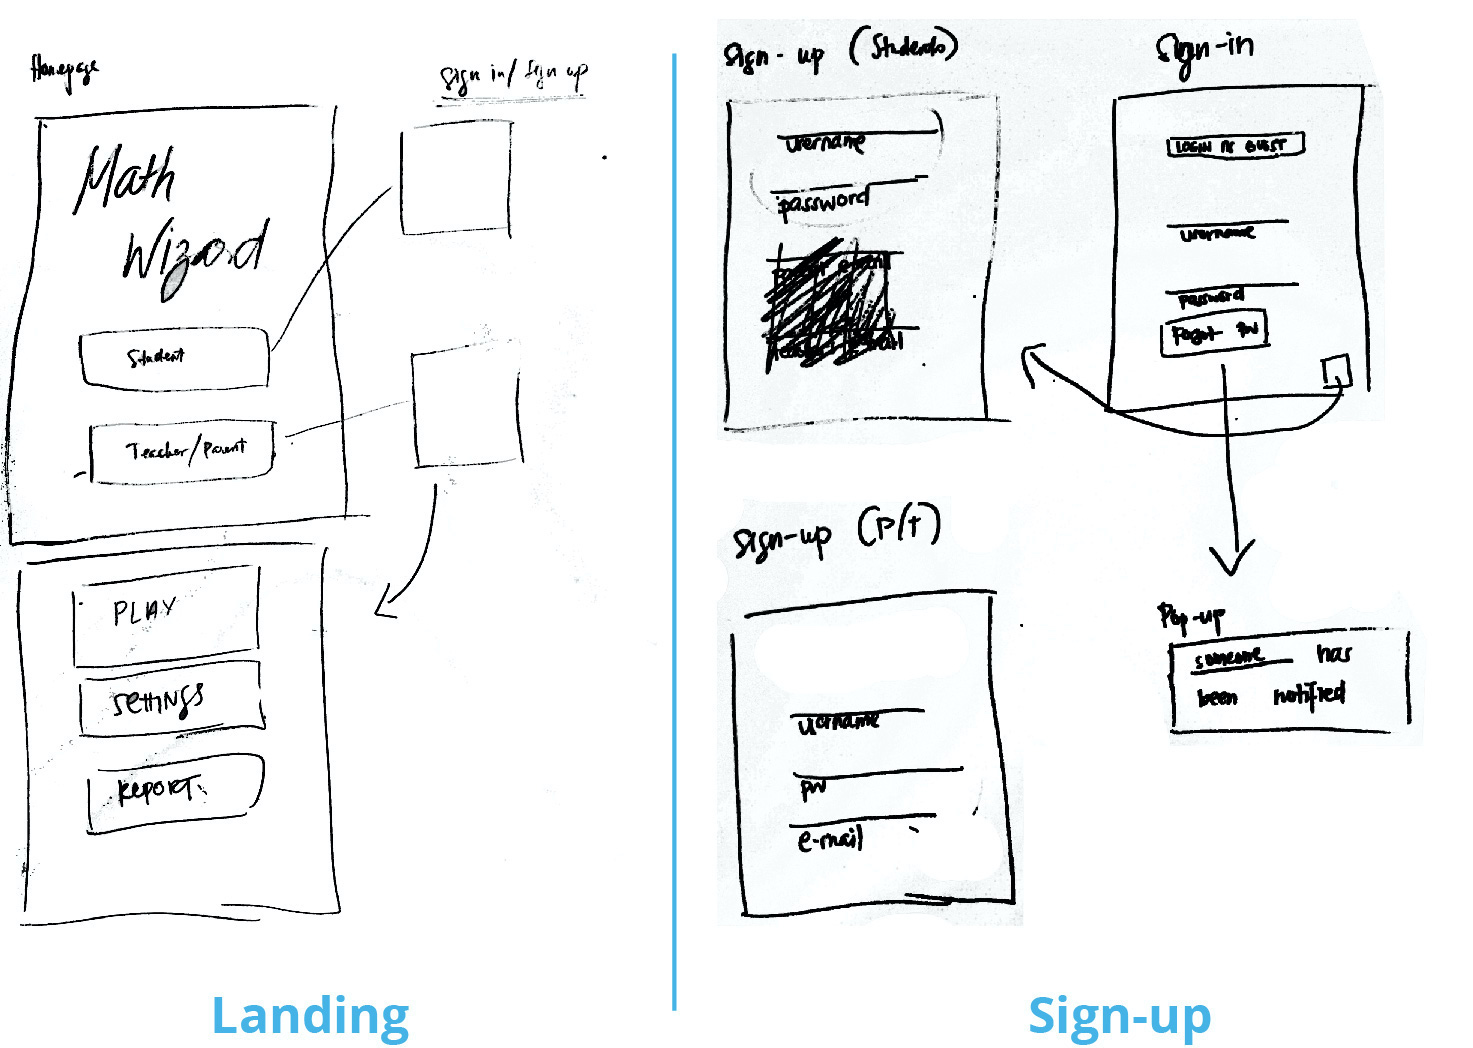 Homepage
Sign in/ Sign up
Math
Wizard
Student
Teacher/Parent
PLAY
SETTINGS
REPORT
Landing
Sign-up (Students)
username
password
Sign-in
LOGIN AS GUEST
username
password
Forgot PW
Sign-up (P/T)
username
pw
e-mail
Pop-up
someone has
been notified
Sign-up